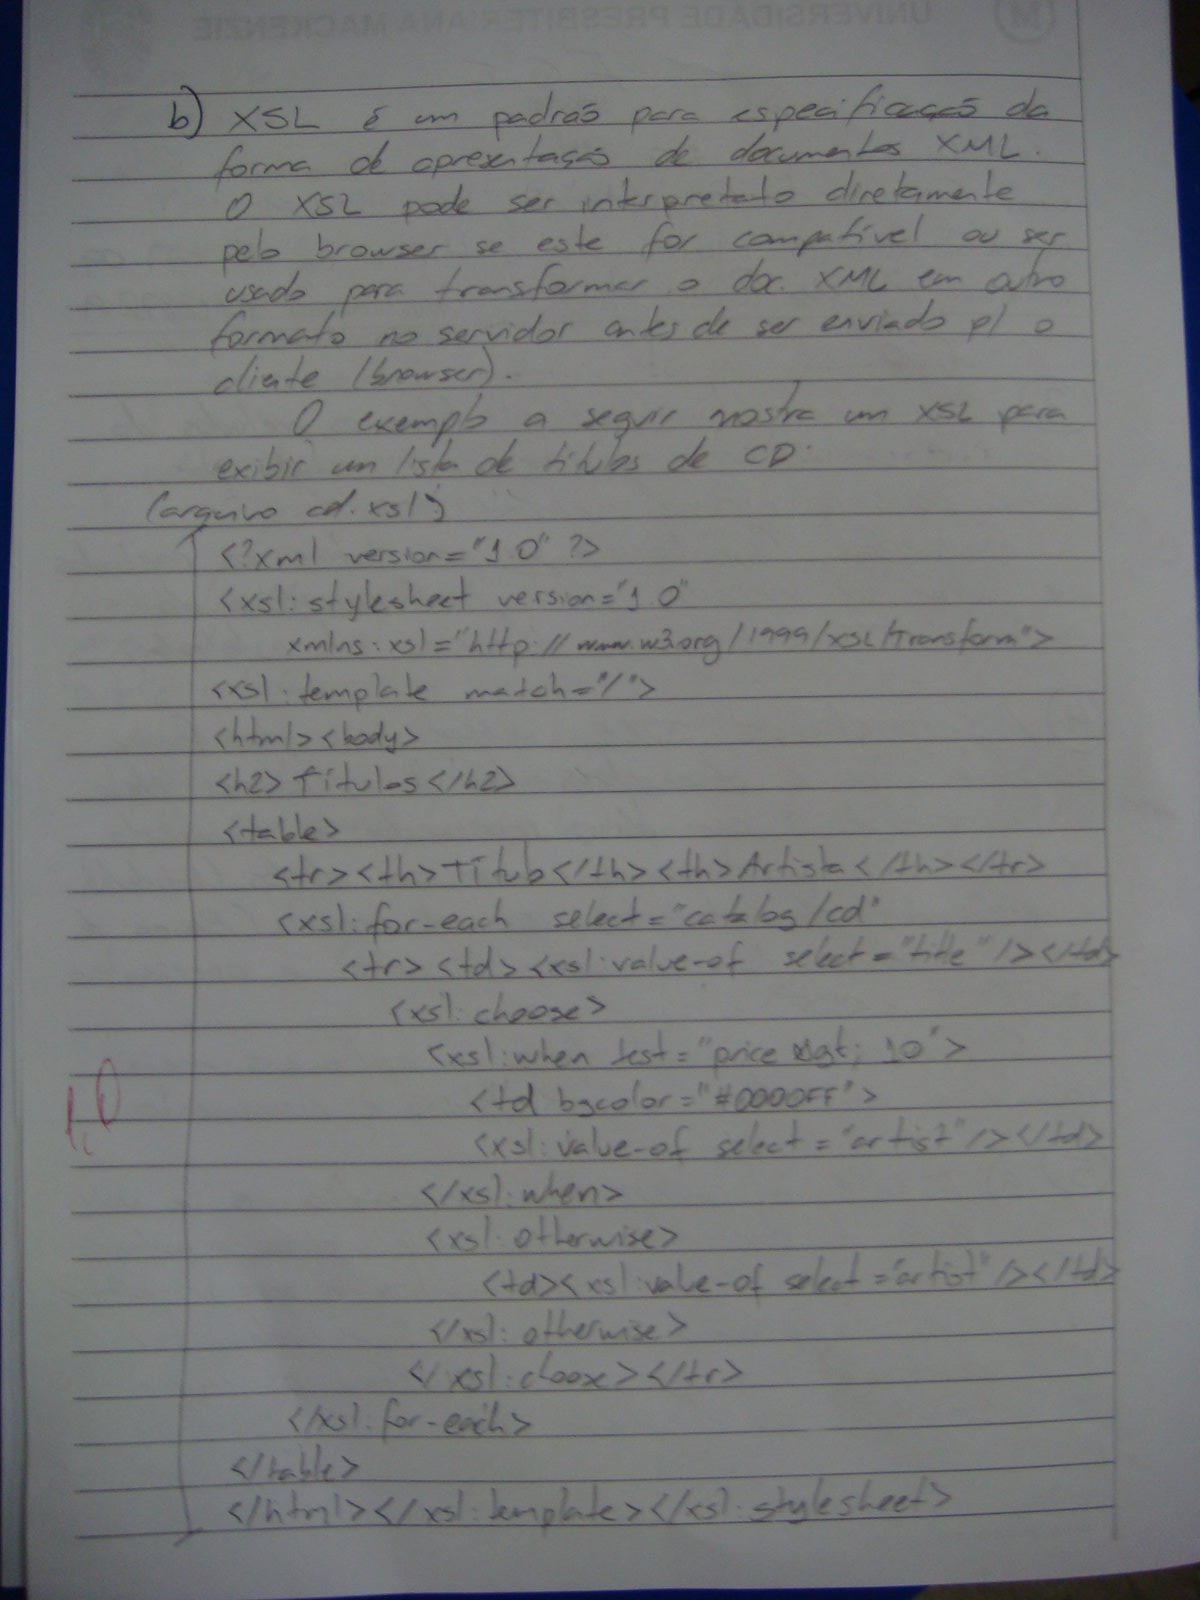 UNIVERSIDADE PRESBITERIANA MACKENZIE
M
b) XSL é um padrão para especificação da
forma de apresentação de documentos XML.
O XSL pode ser interpretato diretamente
pelo browser se este for compatível ou ser
usado para transformar o doc. XML em outro
formato no servidor antes de ser enviado p/ o
cliente (browser).
O exemplo a seguir mostra um XSL para
exibir um lista de titulos de CD:
(arquivo cd.xsl)
<?xml version="1.0" ?>
<xsl:stylesheet version="1.0"
xmlns:xsl="http://www.w3.org/1999/XSL/Transform">
<xsl:template match="/">
<html><body>
<h2>Títulos</h2>
<table>
<tr><th>Título</th><th>Artista</th></tr>
<xsl:for-each select="catalog/cd"
<tr><td><xsl:value-of select="title" /></td>
<xsl:choose>
<xsl:when test="price &gt; 10">
<td bgcolor="#0000FF">
<xsl:value-of select="artist" /></td>
</xsl:when>
<xsl:otherwise>
<td><xsl:value-of select="artist" /></td>
</xsl:otherwise>
</xsl:choose></tr>
</xsl:for-each>
</table>
</html></xsl:template></xsl:stylesheet>
1,0